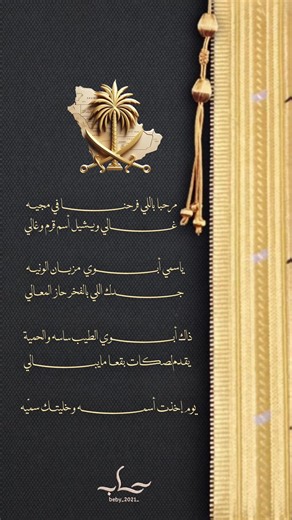 مرحبا باللي فرحنا في مجيه
غالي ويشيل أسم قرم وغالي
ياسمي أبوي مزبان الونيه
جدك اللي بالفخر حاز المعالي
ذاك أبوي الطيب ساسه والحمية
يقدم لصكات بقعا مايبالي
يوم إخذت أسمه وخليتك سميّه
beby_2021_